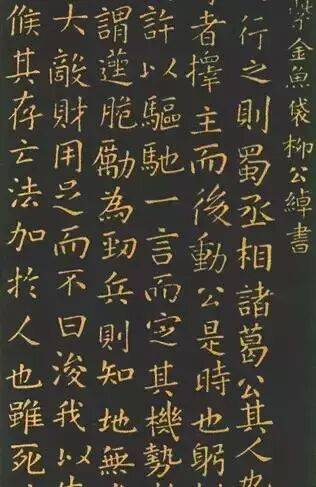 金魚袋柳公綽書
行之則蜀丞相諸葛公其人也
者擇主而後動公是時也躬
許以驅馳一言而定其機勢
謂遴脆勵為勁兵則知地無
大敵財用足而不曰浚我以
候其存亡法加於人也雖死